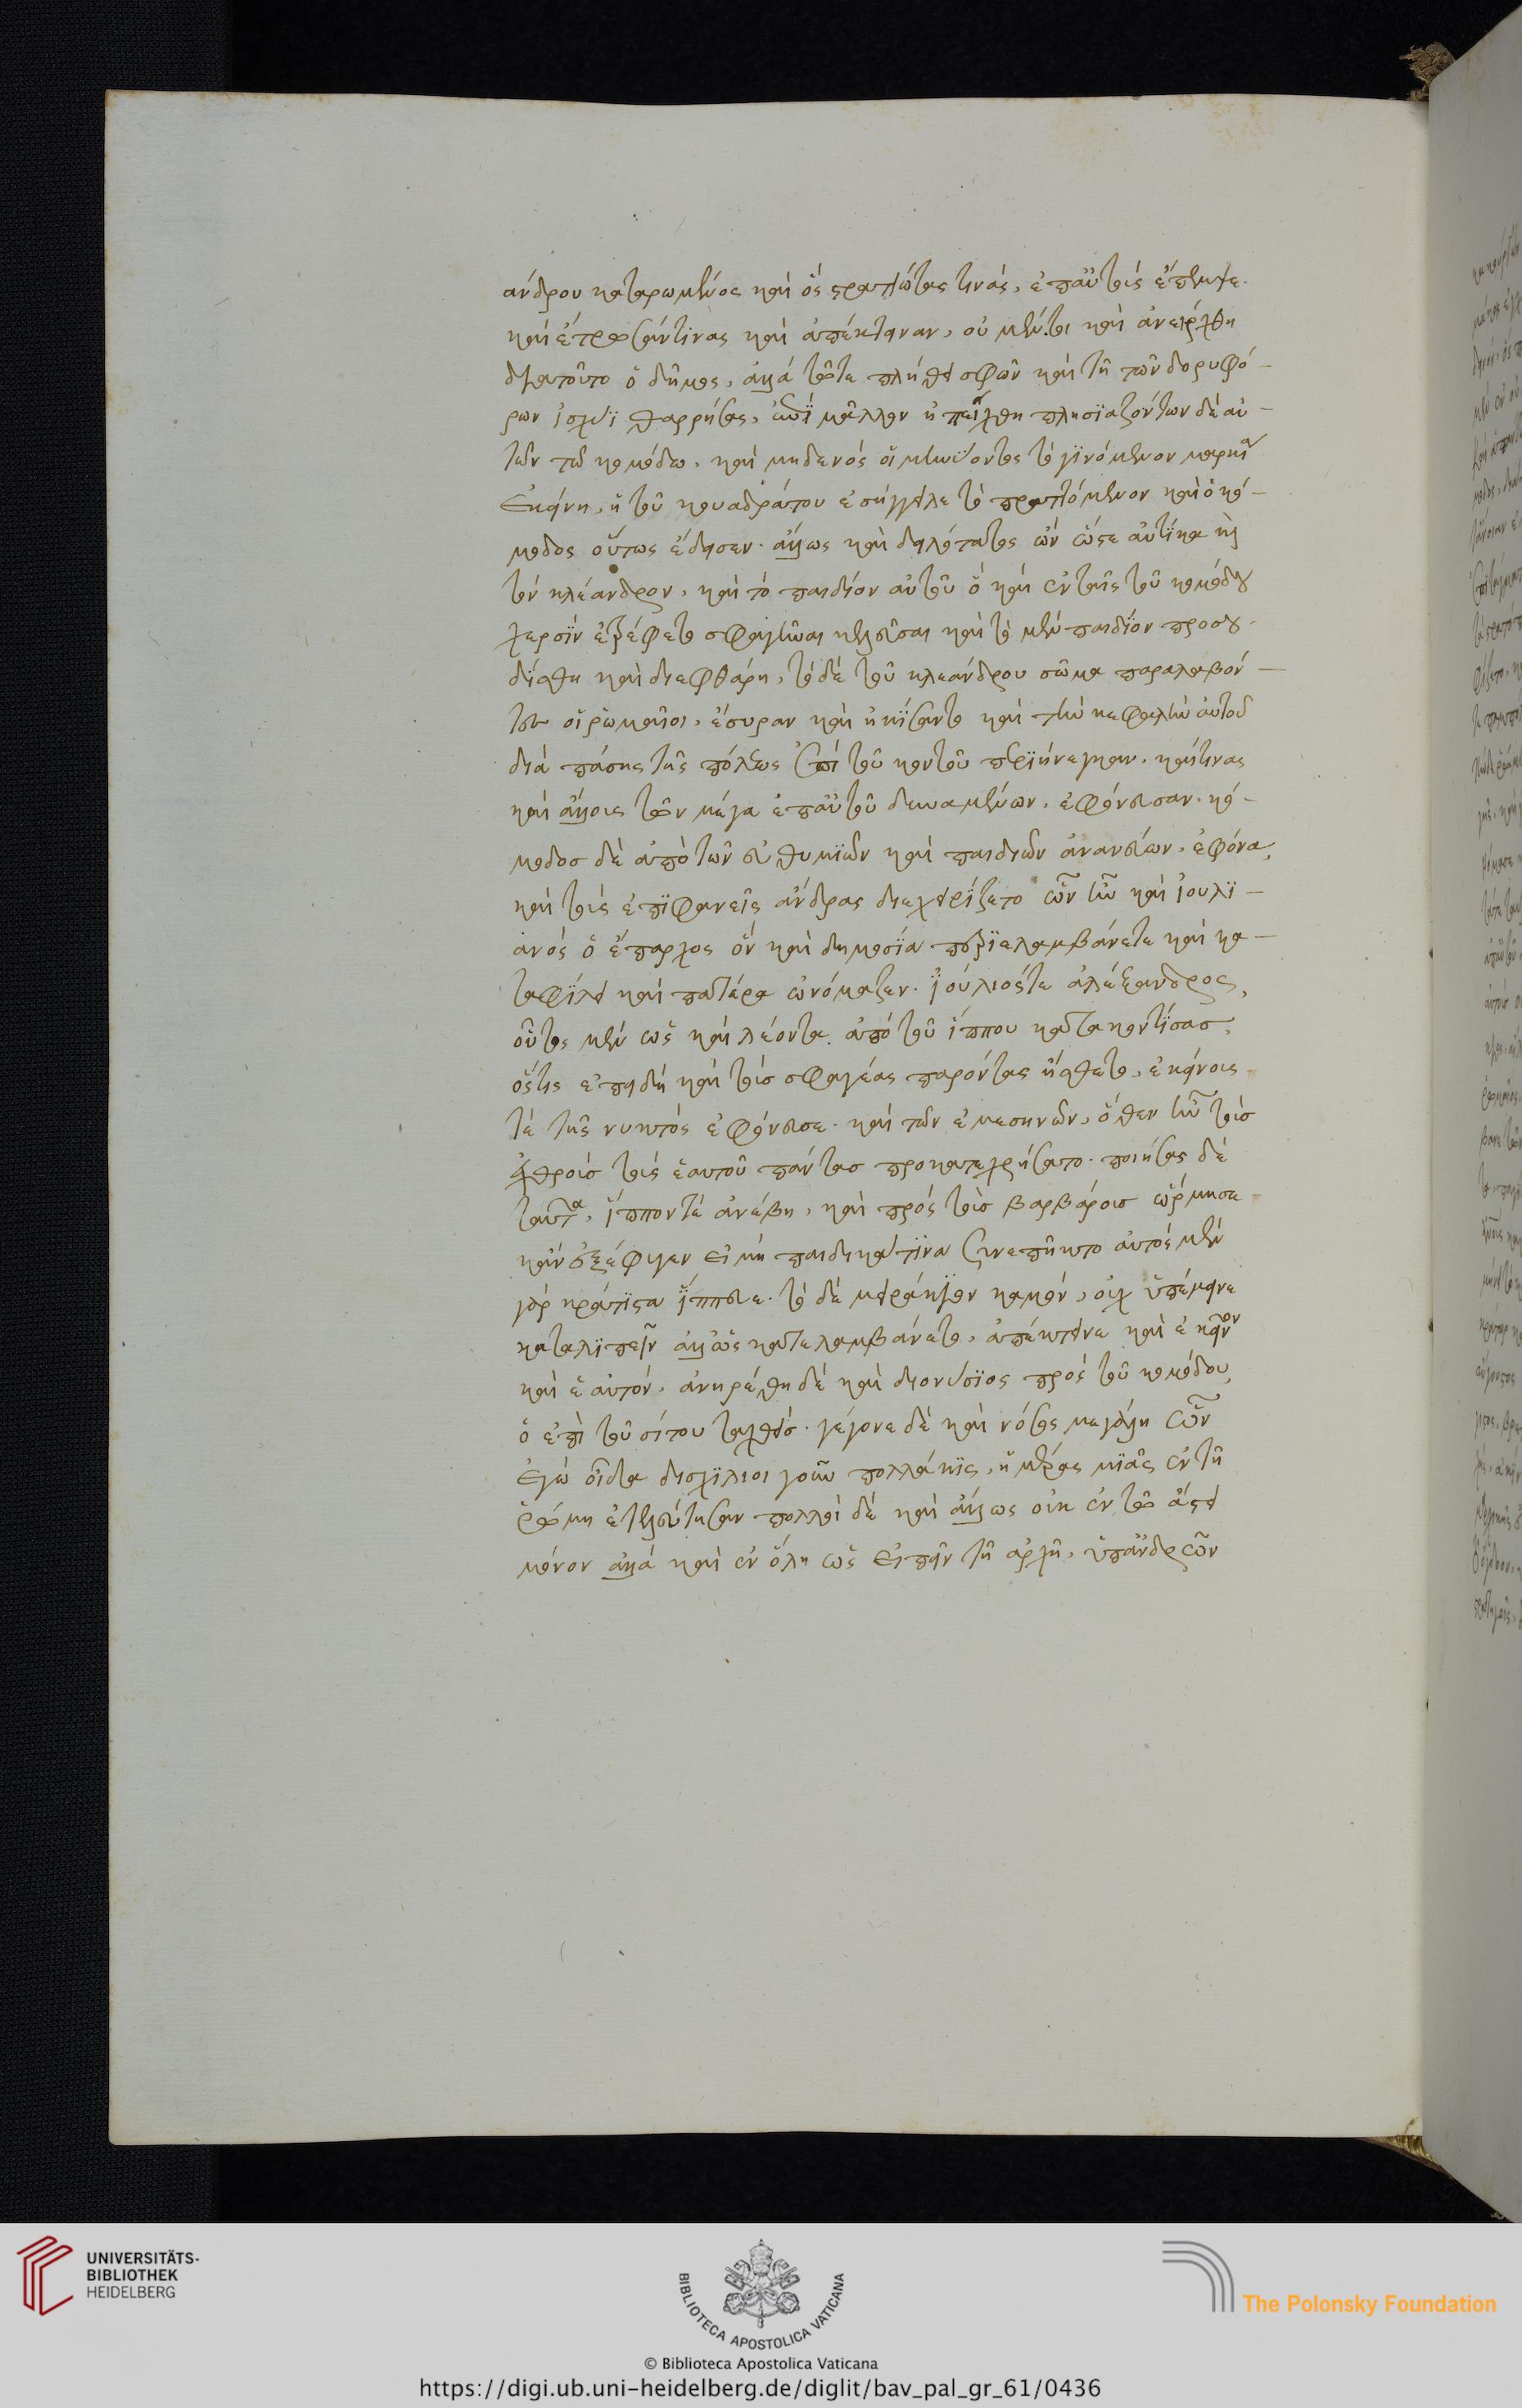 άνδρου καταρωμένος καὶ ὃς στρατιώτας τινάς, ἐπ' αὐτοὺς ἔπεμψε.
καὶ ἔτρωσάν τινας καὶ ἀπέκτειναν, οὐ μέντοι καὶ ἀνείρχθη
διὰ τοῦτο ὁ δῆμος, ἀλλὰ τῶ τε πλήθει σφῶν καὶ τῆ τῶν δορυφό-
ρων ἰσχύϊ θαρρήσας, ἔτι μᾶλλον ἠπείχθη πλησϊαζόντων δὲ αὐ-
τῶν τῶ κομόδω, καὶ μηδενός οἱ μηνύοντος τὸ γϊνόμενον μαρκία
ἐκείνη, ἡ τοῦ κουαδράτου ἐσήγγειλε τὸ πραττόμενον καὶ ὁ κό-
μοδος οὕτως ἔδεισεν. ἄλλως καὶ δειλότατος ὢν ὥστε αὐτίκα καὶ
τὸν κλέανδρον, καὶ τὸ παιδίον αὐτοῦ ὃ καὶ ἐν ταῖς τοῦ κομόδου
χερσὶν ἐτρέφετο σφαγῆναι κελεῦσαι καὶ τὸ μὲν παιδίον προσου-
δίσθη καὶ διεφθάρη, τὸ δὲ τοῦ κλεάνδρου σῶμα παραλαβόν-
τες οἱ ῥωμαῖοι, ἔσυραν καὶ ἠκίσαντο καὶ τὴν κεφαλὴν αὐτοῦ
διὰ πάσης τῆς πόλεως ἐπὶ τοῦ κοντοῦ περιήνεγκαν. καί τινας
καὶ ἄλλους τῶν μέγα ἐπ' αὐτοῦ δυναμένων, ἐφόνευσαν. κό-
μοδοσ δὲ ἀπὸ τῶν εὐθυμϊῶν καὶ παιδιῶν ἀνανεύων, ἐφόνα,
καὶ τοὺς ἐπϊφανεῖς ἄνδρας διεχειρίζετο ὧν ἦν καὶ ἰουλϊ-
ανός ὁ ἔπαρχος ὃν καὶ δημοσία περϊελαμβάνετε καὶ κα-
ταφίλει καὶ πατέρα ὠνόμαζεν. ἰούλιός τε ἀλέξανδρος,
οὗτος μὲν ὡς καὶ λέοντα ἀπὸ τοῦ ἵππου κατακοντίσασ,
ὅστις ἐπειδὴ καὶ τοὺσ σφαγέας παρόντας ἤσθετο, ἐκείνους
τὲ τῆς νυκτός ἐφόνευσε. καὶ τῶν ἐμεσηνῶν, ὅθεν ἦν τοὺσ
ἐχθροὺσ τοὺς ἑαυτοῦ πάντασ προκατεχρήσατο. ποιήσας δὲ
ταῦτα, ἵππον τὲ ἀνέβη, καὶ πρός τοὺσ βαρβάρουσ ὥρμησε
κἂν ἐξέφυγεν εἰ μὴ παιδικά τϊνα συνεπῆκτο αὐτός μὲν
γὰρ κράτϊστα ἵππευε. τὸ δὲ μειράκϊον καμόν, οὐχ ὑπέμεινε
καταλϊπεῖν ἀλλ' ὡς κατελαμβάνετο, ἀπέκτεινε καὶ ἐκεῖνον
καὶ ἑαυτόν. ἀνηρέθη δὲ καὶ διονύσϊος πρὸς τοῦ κομόδου,
ὁ ἐπὶ τοῦ σίτου ταχθείσ. γέγονε δὲ καὶ νόσος μεγάλη ὧν
ἐγὼ οἶδα δισχίλιοι γοῦν πολλάκϊς, ἡμέρας μϊᾶς ἐν τῆ
ῥώμη ἐτελεύτησαν πολλοὶ δὲ καὶ ἄλλως οὐκ ἐν τῶ ἄστει
μόνον ἀλλὰ καὶ ἐν ὅλη ὡς εἰπεῖν τῆ ἀρχῆ, ὑπ' ἀνδρῶν
UNIVERSITÄTS-
BIBLIOTHEK
HEIDELBERG
BIBLIOTECA APOSTOLICA VATICANA
The Polonsky Foundation
© Biblioteca Apostolica Vaticana
https://digi.ub.uni-heidelberg.de/diglit/bav_pal_gr_61/0436